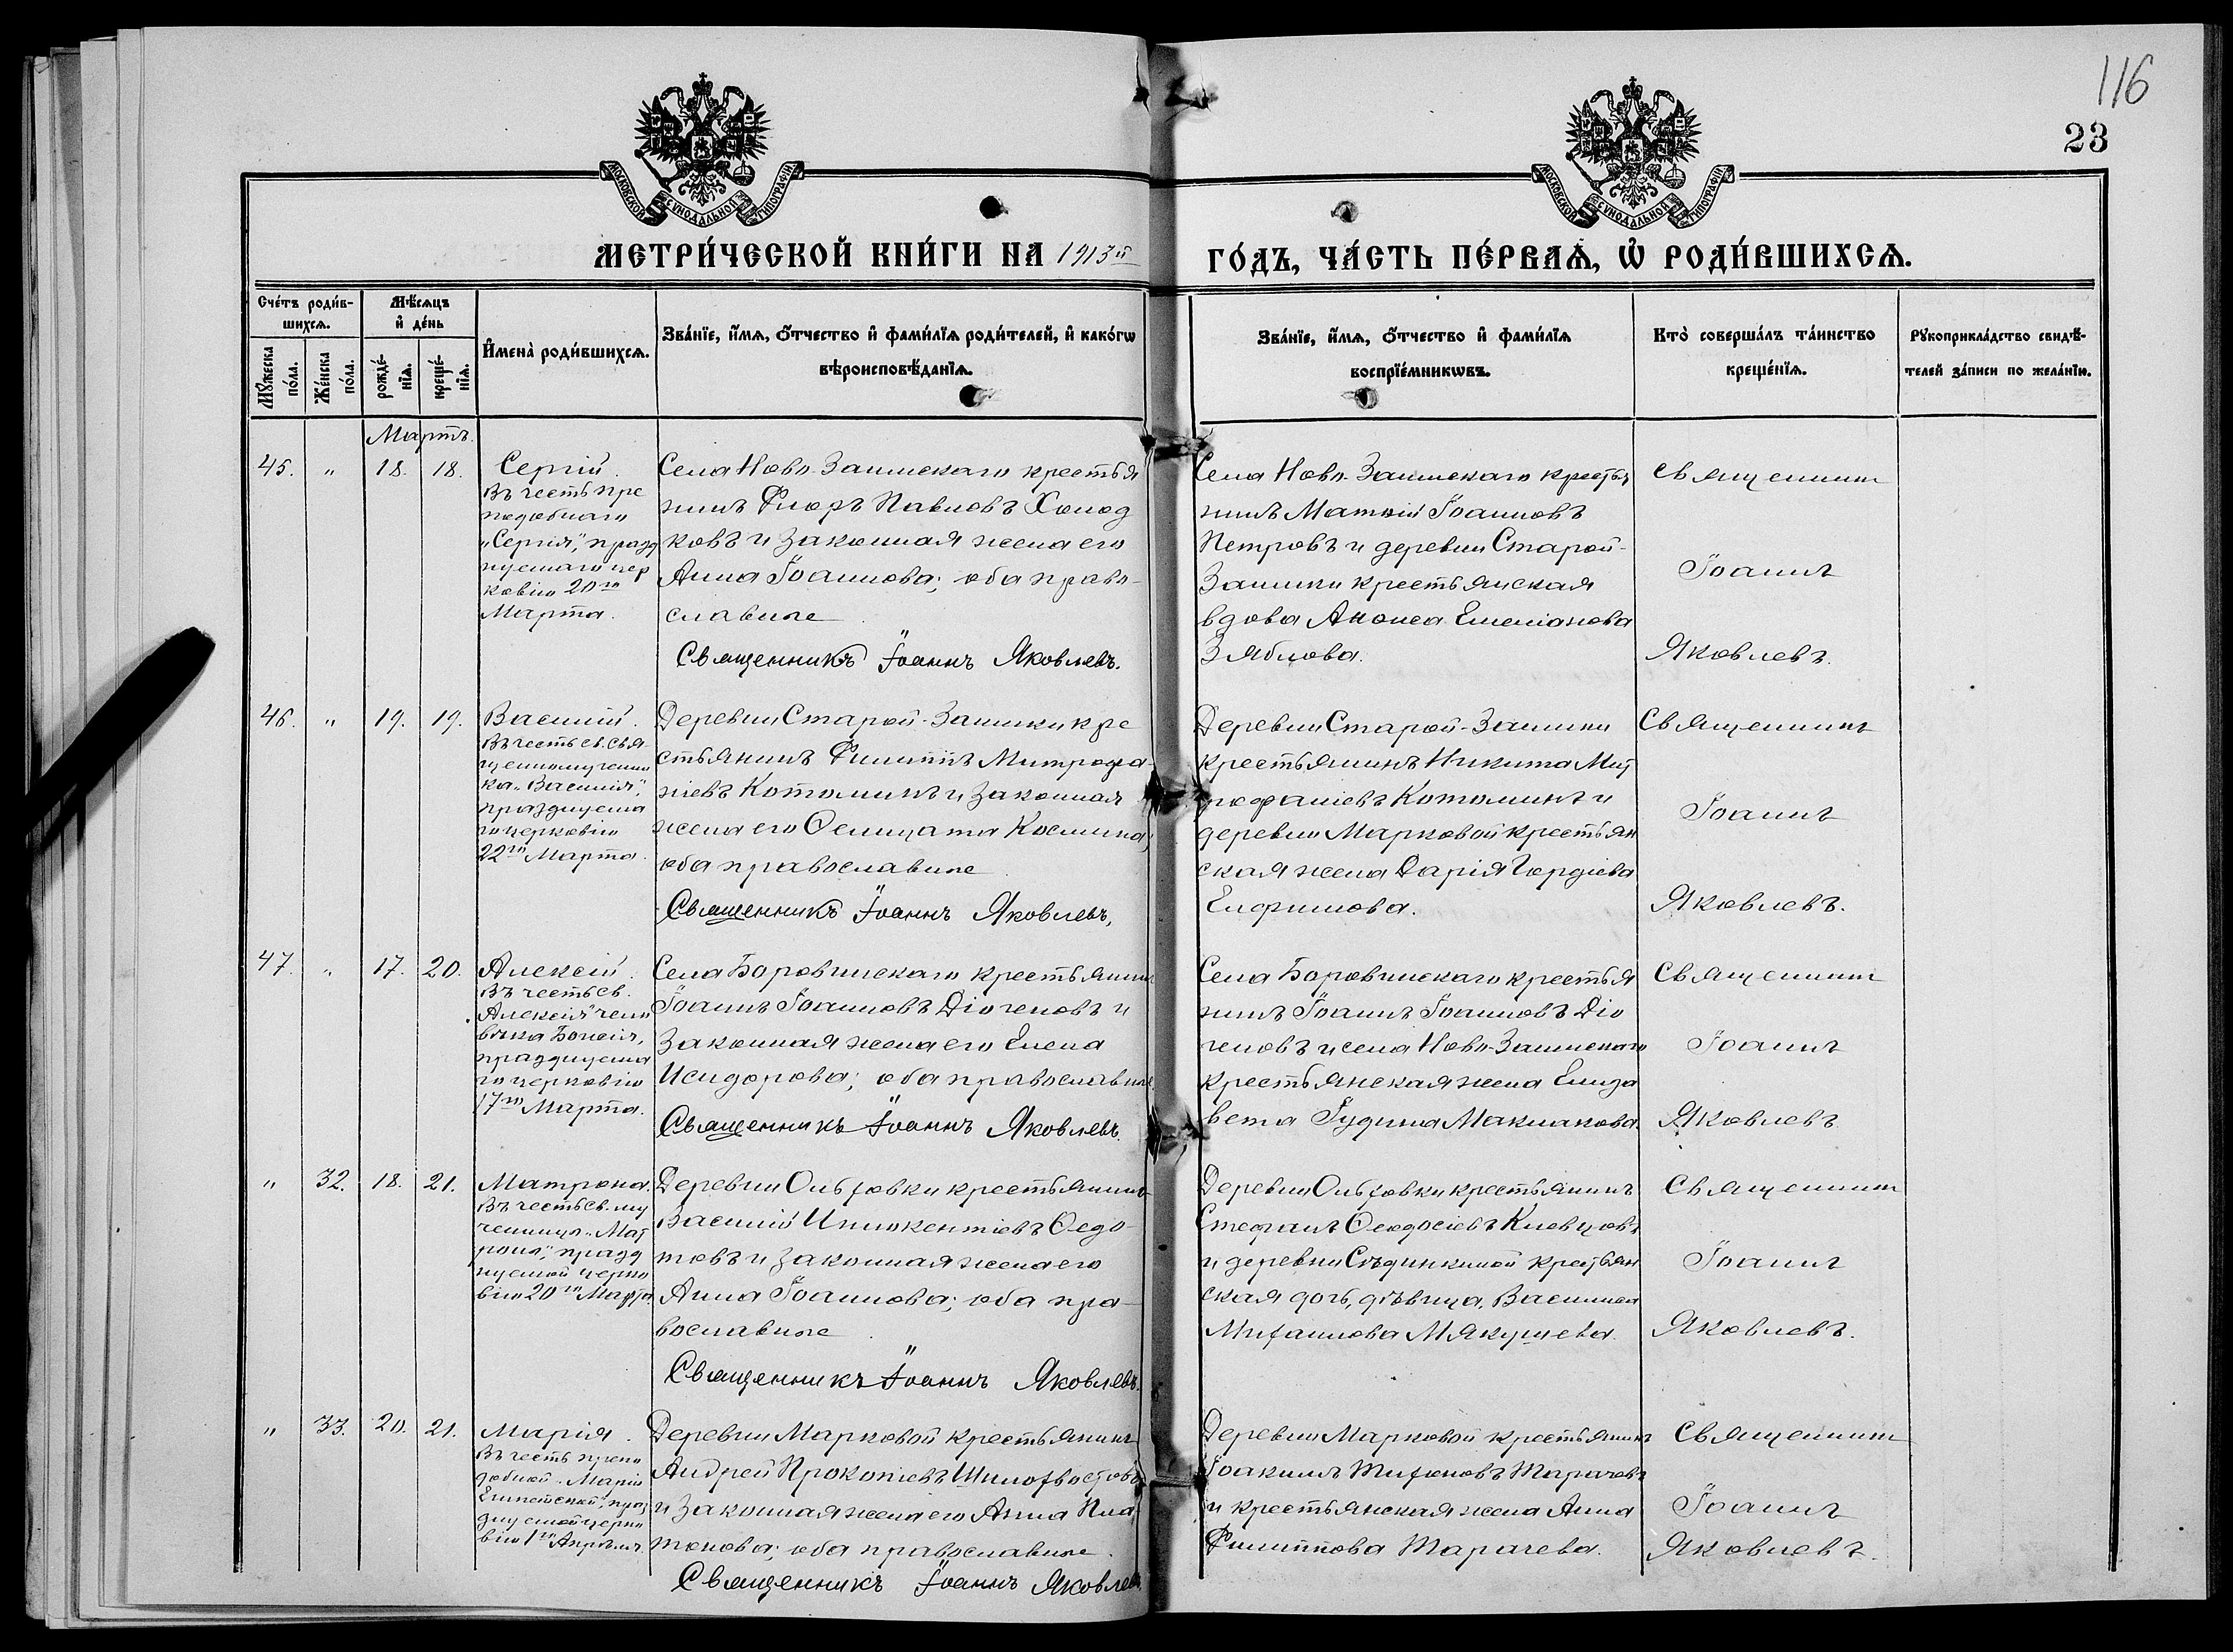 116
23
МОСКОВСКОЙ СУНОДАЛЬНОЙ ТИПОГРАФІИ
МОСКОВСКОЙ СУНОДАЛЬНОЙ ТИПОГРАФІИ
МЕТРИ́ЧЕСКОЙ КНИ́ГИ НА 1913й
ГО́ДЪ, ЧА́СТЬ ПЕ́РВАѦ, Ѡ҆ РОДИ́ВШИХСѦ.
Сче́тъ роди́в-
шихсѧ.
Мѣ́сѧцъ
и҆ де́нь
Мꙋ́жеска
по́ла.
Же́нска
по́ла.
рожде́-
нїѧ.
креще́-
нїѧ.
И҆мена̀ роди́вшихсѧ.
Зва́нїе, и҆́мѧ, ѻ҆́тчество и҆ фами́лїѧ роди́телей, и҆ како́гѡ
вѣроисповѣ́данїѧ.
Зва́нїе, и҆́мѧ, ѻ҆́тчество и҆ фами́лїѧ
воспрїе́мникѡвъ.
Кто̀ соверша́лъ та́инство
креще́нїѧ.
Рꙋкоприкла́дство свидѣ́-
телей за́писи по жела́нїю.
Мартъ.
45. " 18. 18.
Сергій.
Въ честь пре
подобнаго
„Сергія", празд
нуемаго цер
ковію 20го
Марта.
Села Ново-Заимскаго крестья
нинъ Флоръ Павловъ Холод
ковъ и законная жена его
Анна Іоаннова; оба право-
славные
Священникъ Іоаннъ Яковлевъ.
Села Ново-Заимскаго крестья
нинъ Матѳій Іоанновъ
Петровъ и деревни Старой-
Заимки крестьянская
вдова Анфиса Емеліанова
Зяблова.
Священникъ
Іоаннъ
Яковлевъ.
46. " 19. 19.
Василій.
Въ честь св. свя-
щенномучени
ка „Василія",
празднуема
го церковію
22го Марта.
Деревни Старой-Заимки кре
стьянинъ Филиппъ Митрофа-
ніевъ Котоминъ и законная
жена его Ѳелицата Космина;
оба православные
Священникъ Іоаннъ Яковлевъ.
Деревни Старой-Заимки
крестьянинъ Никита Мит
рофаніевъ Котоминъ и
деревни Марковой крестьян
ская жена Дарія Гордіева
Елфимова.
Священникъ
Іоаннъ
Яковлевъ.
47. " 17. 20.
Алексій.
Въ честь св.
„Алексія" чело
вѣка Божія,
празднуема
го церковію
17го Марта.
Села Боровинскаго крестьянинъ
Іоаннъ Іоанновъ Діогеновъ и
законная жена его Елена
Исидорова; оба православные
Священникъ Іоаннъ Яковлевъ.
Села Боровинскаго крестья
нинъ Іоаннъ Іоанновъ Діо
геновъ и села Ново-Заимскаго
крестьянская жена Елиза
вета Іудина Маклакова.
Священникъ
Іоаннъ
Яковлевъ.
" 32. 18. 21.
Матрона.
Въ честь св. му
ченицы „Мат
роны", празд
нуемой церко
вію 20го Марта.
Деревни Ольховки крестьянинъ
Василій Иннокентіевъ Ѳедо-
товъ и законная жена его
Анна Іоаннова; оба пра-
вославные.
Священникъ Іоаннъ Яковлевъ.
Деревни Ольховки крестьянинъ
Стефанъ Ѳеодосіевъ Клевцовъ
и деревни Сединкиной крестьян
ская дочь, дѣвица, Василиса
Михаилова Мякушева.
Священникъ
Іоаннъ
Яковлевъ.
" 33. 20. 21.
Марія.
Въ честь препо
добной „Маріи
Египетской", праз
днуемой церко
вію 1го Апрѣля.
Деревни Марковой крестьянинъ
Андрей Прокопіевъ Шилохвостовъ
и законная жена его Анна Пла-
тонова; оба православные.
Священникъ Іоаннъ Яковлевъ
Деревни Марковой крестьянинъ
Іоакимъ Тихоновъ Тарачевъ
и крестьянская жена Анна
Филиппова Тарачева.
Священникъ
Іоаннъ
Яковлевъ.